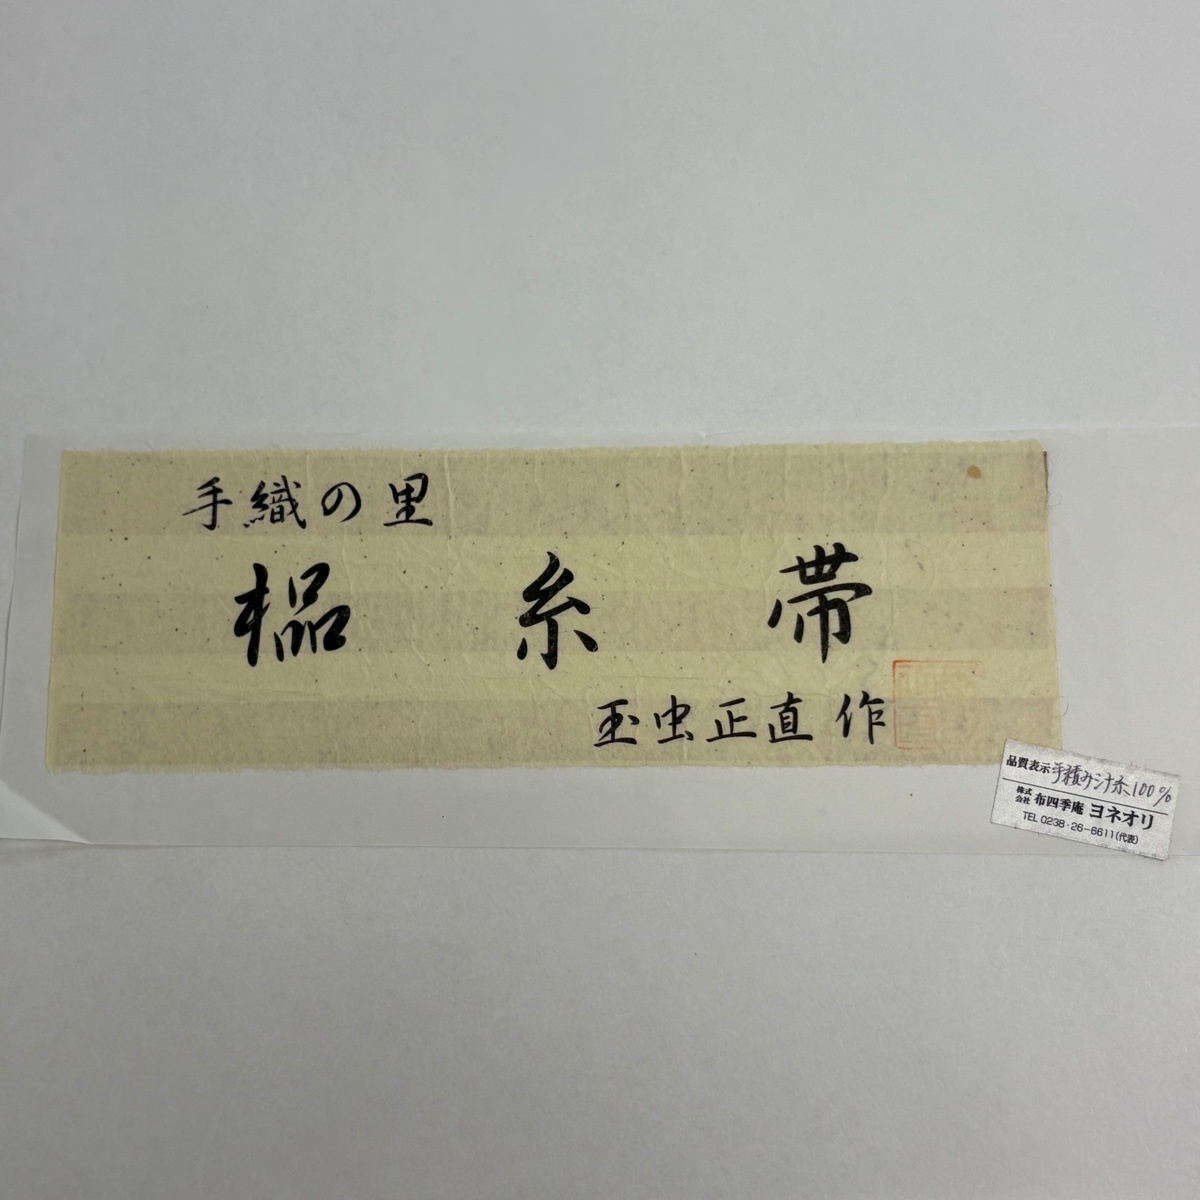 手織の里
榀糸帯
玉虫正直作
品質表示 手積みシナ糸100%
株式会社 布四季庵 ヨネオリ
TEL 0238・26-6611(代表)